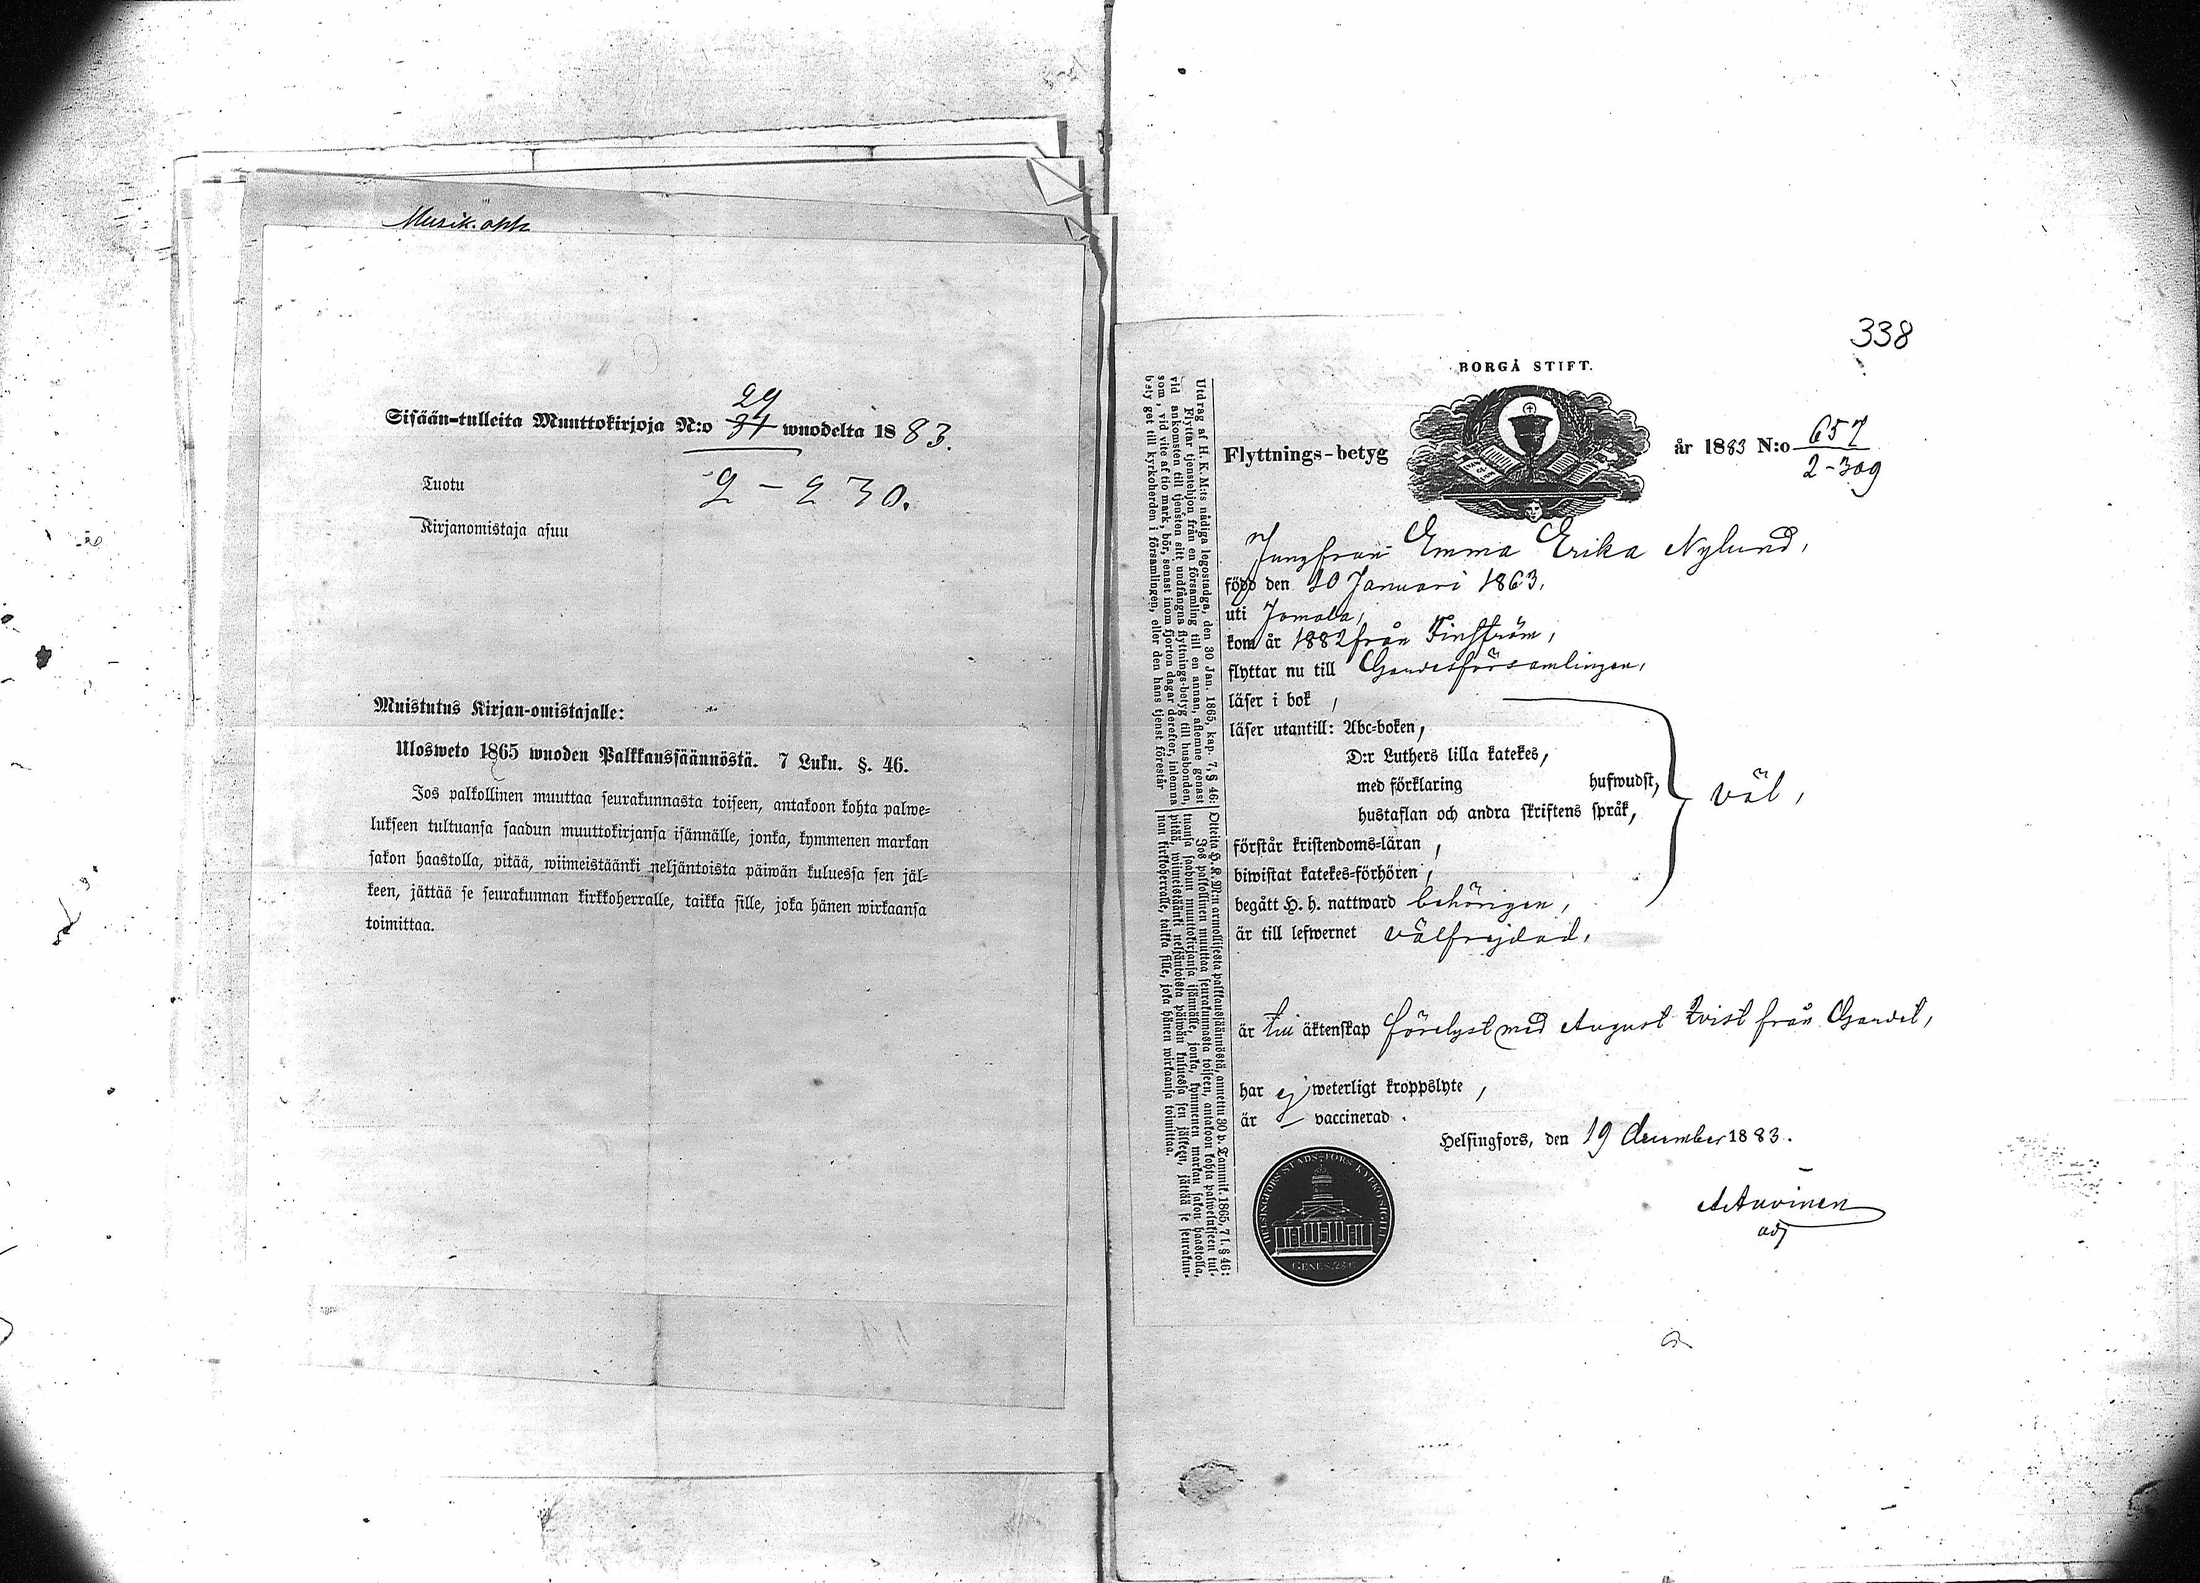 Musik. opp
Sisään-tulleita Muuttokirjoja N:o 29 31 wuodelta 1883.
Tuotu 2-230.
Kirjanomistaja asuu
Muistutus Kirjan-omistajalle:
Ulosweto 1865 wuoden Palkkaussäännöstä. 7 Luku. §. 46.
Jos palkollinen muuttaa seurakunnasta toiseen, antakoon kohta palwe=
lukseen tultuansa saadun muuttokirjansa isännälle, jonka, kymmenen markan
sakon haastolla, pitää, wiimeistäänki neljäntoista päiwän kuluessa sen jäl=
keen, jättää se seurakunnan kirkkoherralle, taikka sille, joka hänen wirkaansa
toimittaa.
338
BORGÅ STIFT.
Flyttnings-betyg år 1883 N:o 657
2-309
Utdrag af H. K. M:ts nådiga legostadga, den 30 Jan. 1865, kap. 7, § 46:
Flyttar tjenstehjon från en församling till en annan, aflemne genast
vid ankomsten till tjensten sitt undfångna flyttnings-betyg till husbonden,
som, vid vite af tio mark, bör, senast inom fjorton dagar derefter, inlemna
betyget till kyrkoherden i församlingen, eller den hans tjenst förestår
Otteita H. K. M:n armollisesta palkkaussäännöstä, annettu 30 p. Tammik. 1865, 7 l. § 46:
Jos palkollinen muuttaa seurakunnasta toiseen, antakoon kohta palwelukseen tul=
tuansa saadun muuttokirjansa isännälle, jonka, kymmenen markan sakon haastolla,
pitää, wiimeistäänki neljäntoista päiwän kuluessa sen jälkeen, jättää se seurakun=
nan kirkkoherralle, taikka sille, joka hänen wirkaansa toimittaa.
Jungfrun Emma Erika Nylund,
född den 10 Januari 1863,
uti Jomala,
kom år 1882 från Finström,
flyttar nu till Gardesförsamlingen,
läser i bok ,
läser utantill: Abc-boken,
D:r Luthers lilla katekes,
med förklaring hufwudst,
hustaflan och andra skriftens språk,
väl,
förstår kristendoms-läran ,
biwistat katekes-förhören ,
begått H. h. nattward behörigen,
är till lefwernet välfrejdad,
är till äktenskap förelyst med August Qvist från Gardet,
har ej weterligt kroppslyte ,
är – vaccinerad .
Helsingfors, den 19 december 1883.
A Auvinen
adj
HELSINGFORS STADS-FÖRS. KYRKO SIGILL.
GENES. 28